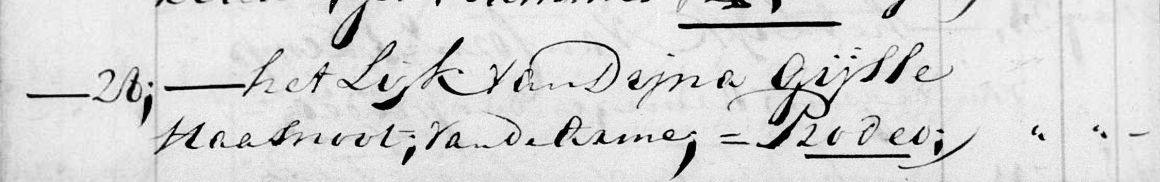 — 28; — het Lijk van Dijna Gijsse
Haasnoot; van de Arme; = Pro deo; " " -